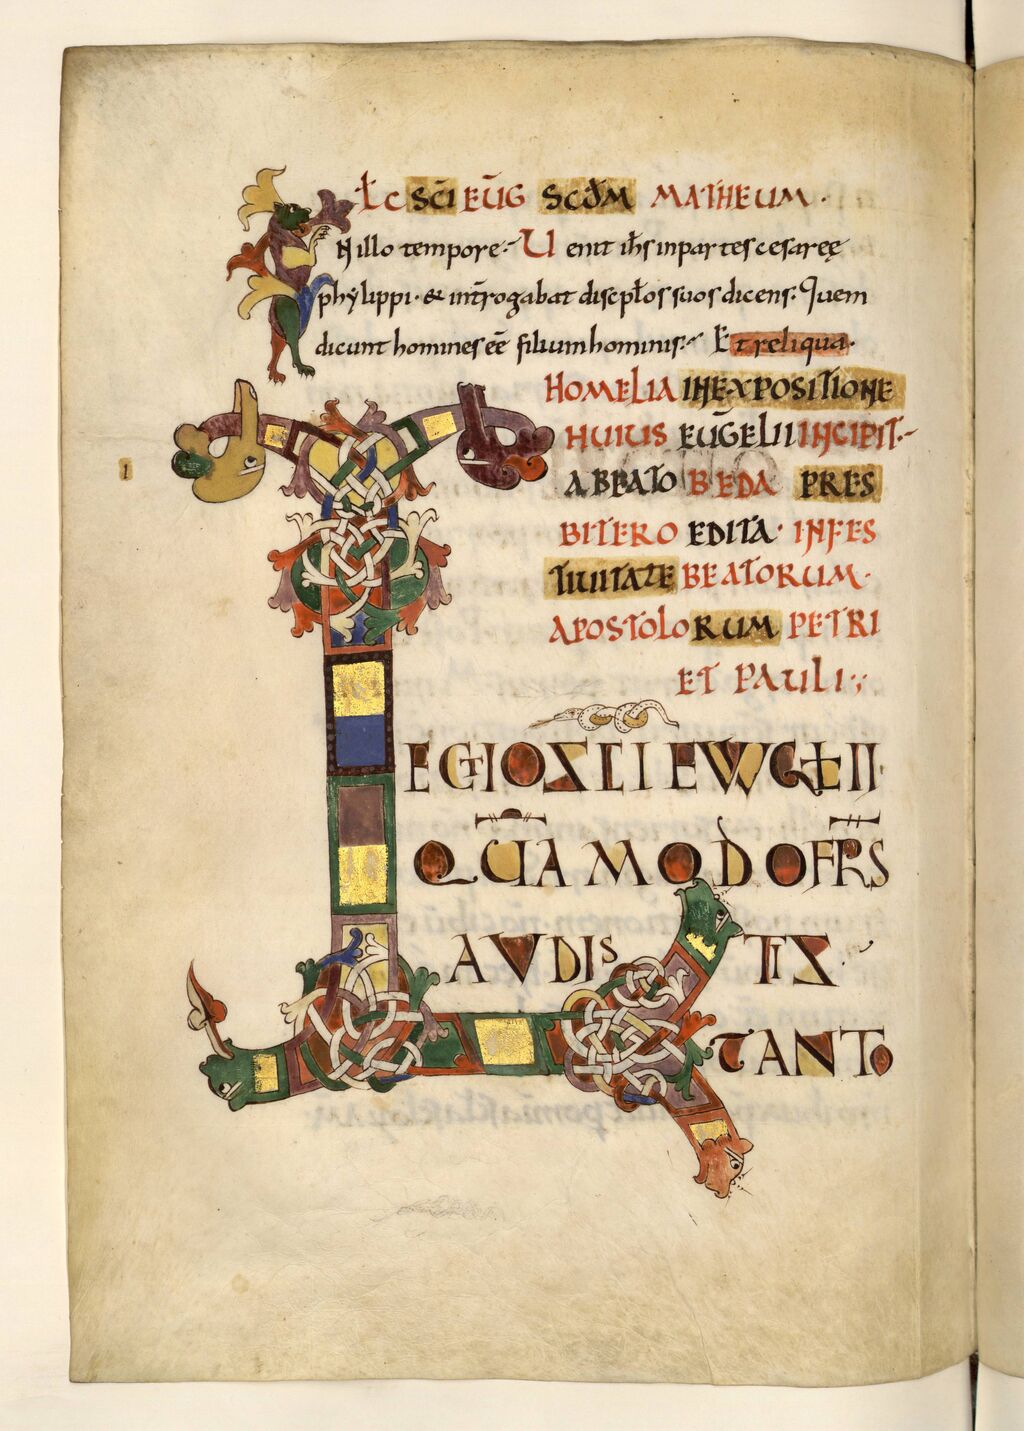 Łc SC̄I EŪG SCDM MATHEUM·
IN illo tempore· Uenit ih̄s inpartes cesareę
phylippi· & intr̄ogabat discipłos suos dicens: Quem
dicunt homines eē filium hominis· Et reliqua·
HOMELIA IN EXPOSITIONE
HUIUS EUG̅ELII INCIPIT·
A BEATO BEDA PRES
BITERO EDITA· IN FES
TIUITATE BEATORUM·
APOSTOLORUM PETRI
ET PAULI
LECTIO SCI EWGLII·
QUĀ MODO FR̄S
AUDISTIS·
TANTO